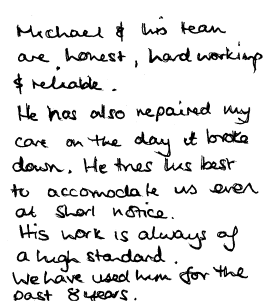 Michael & his team
are honest, hard working
& reliable.
He has also repaired my
care on the day it broke
down. He tries his best
to accomodate us even
at short notice.
His work is always of
a high standard.
We have used him for the
past 8 years.